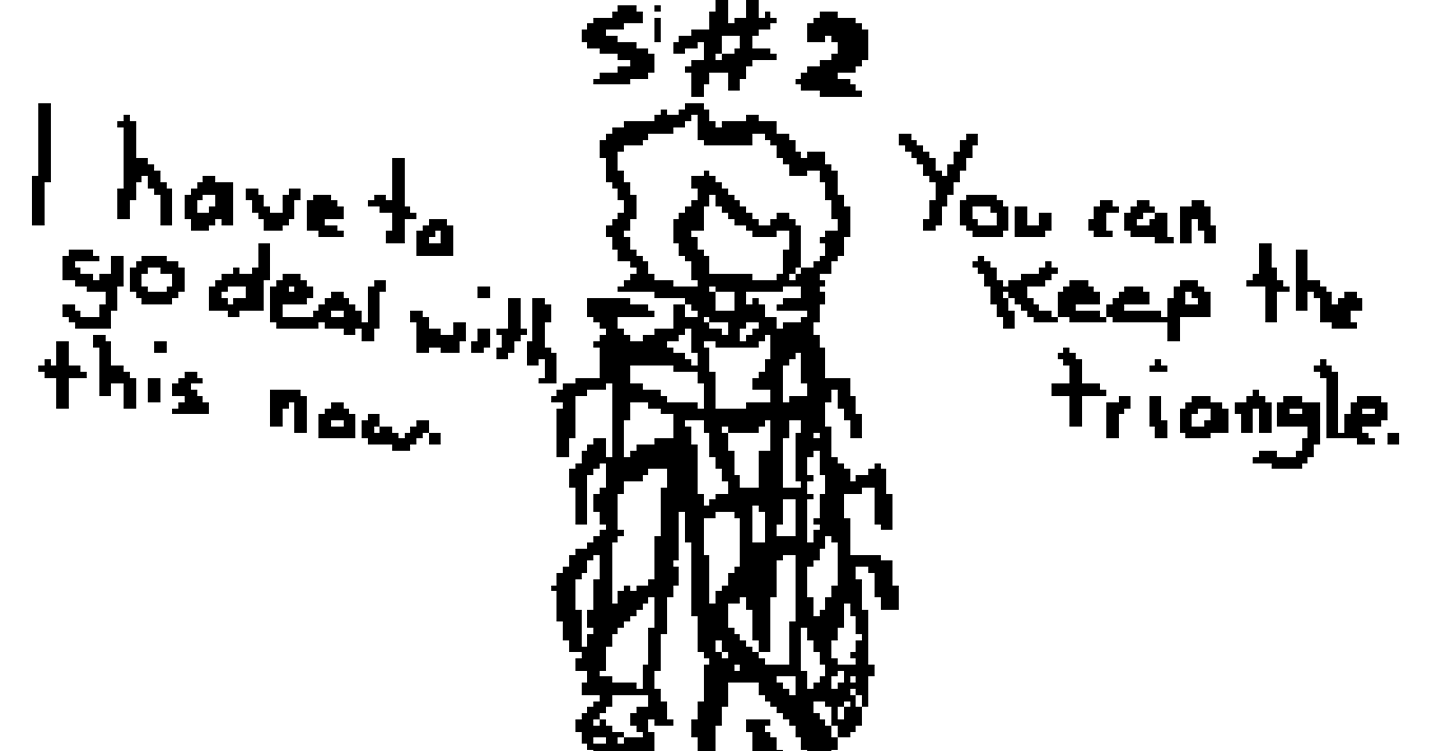 Si #2
I have to
go deal with
this now.
You can
keep the
triangle.